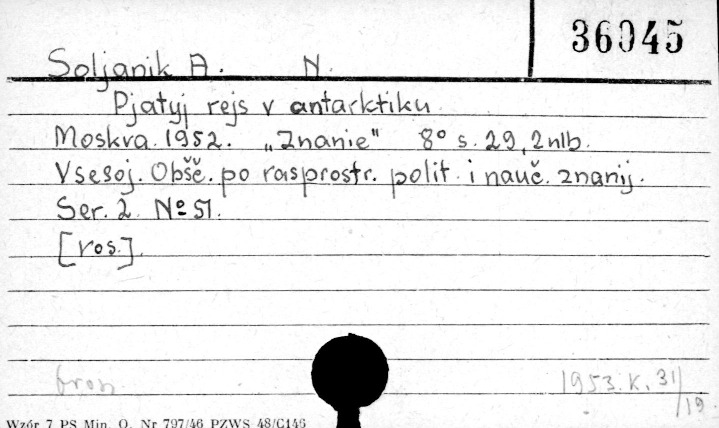 36045
Soljanik A. N.
Pjatyj rejs v antarktiku
Moskva. 1952. „Znanie" 8° s. 29, 2nlb.
Vsesoj. Obšč. po rasprostr. polit. i nauč. znanij.
Ser. 2 No 51.
[ros.]
bros.
1953. K. 31/19.
Wzór 7 PS Min. O. Nr 797/46 PZWS 48/C146